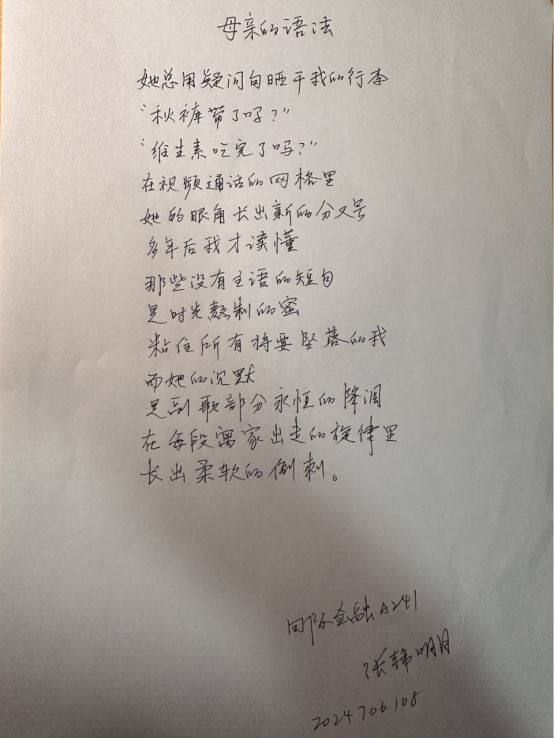 母亲的语法
她总用疑问句晒干我的行李
“秋裤带了吗？”
“维生素吃完了吗？”
在视频通话的网格里
她的眼角长出新的分叉号
多年后我才读懂
那些没有主语的短句
是时光熬制的蜜
粘住所有将要坠落的我
而她的沉默
是副歌部分永恒的降调
在每段离家出走的旋律里
长出柔软的倒刺。
国际金融A241
张韩明月
2024706108